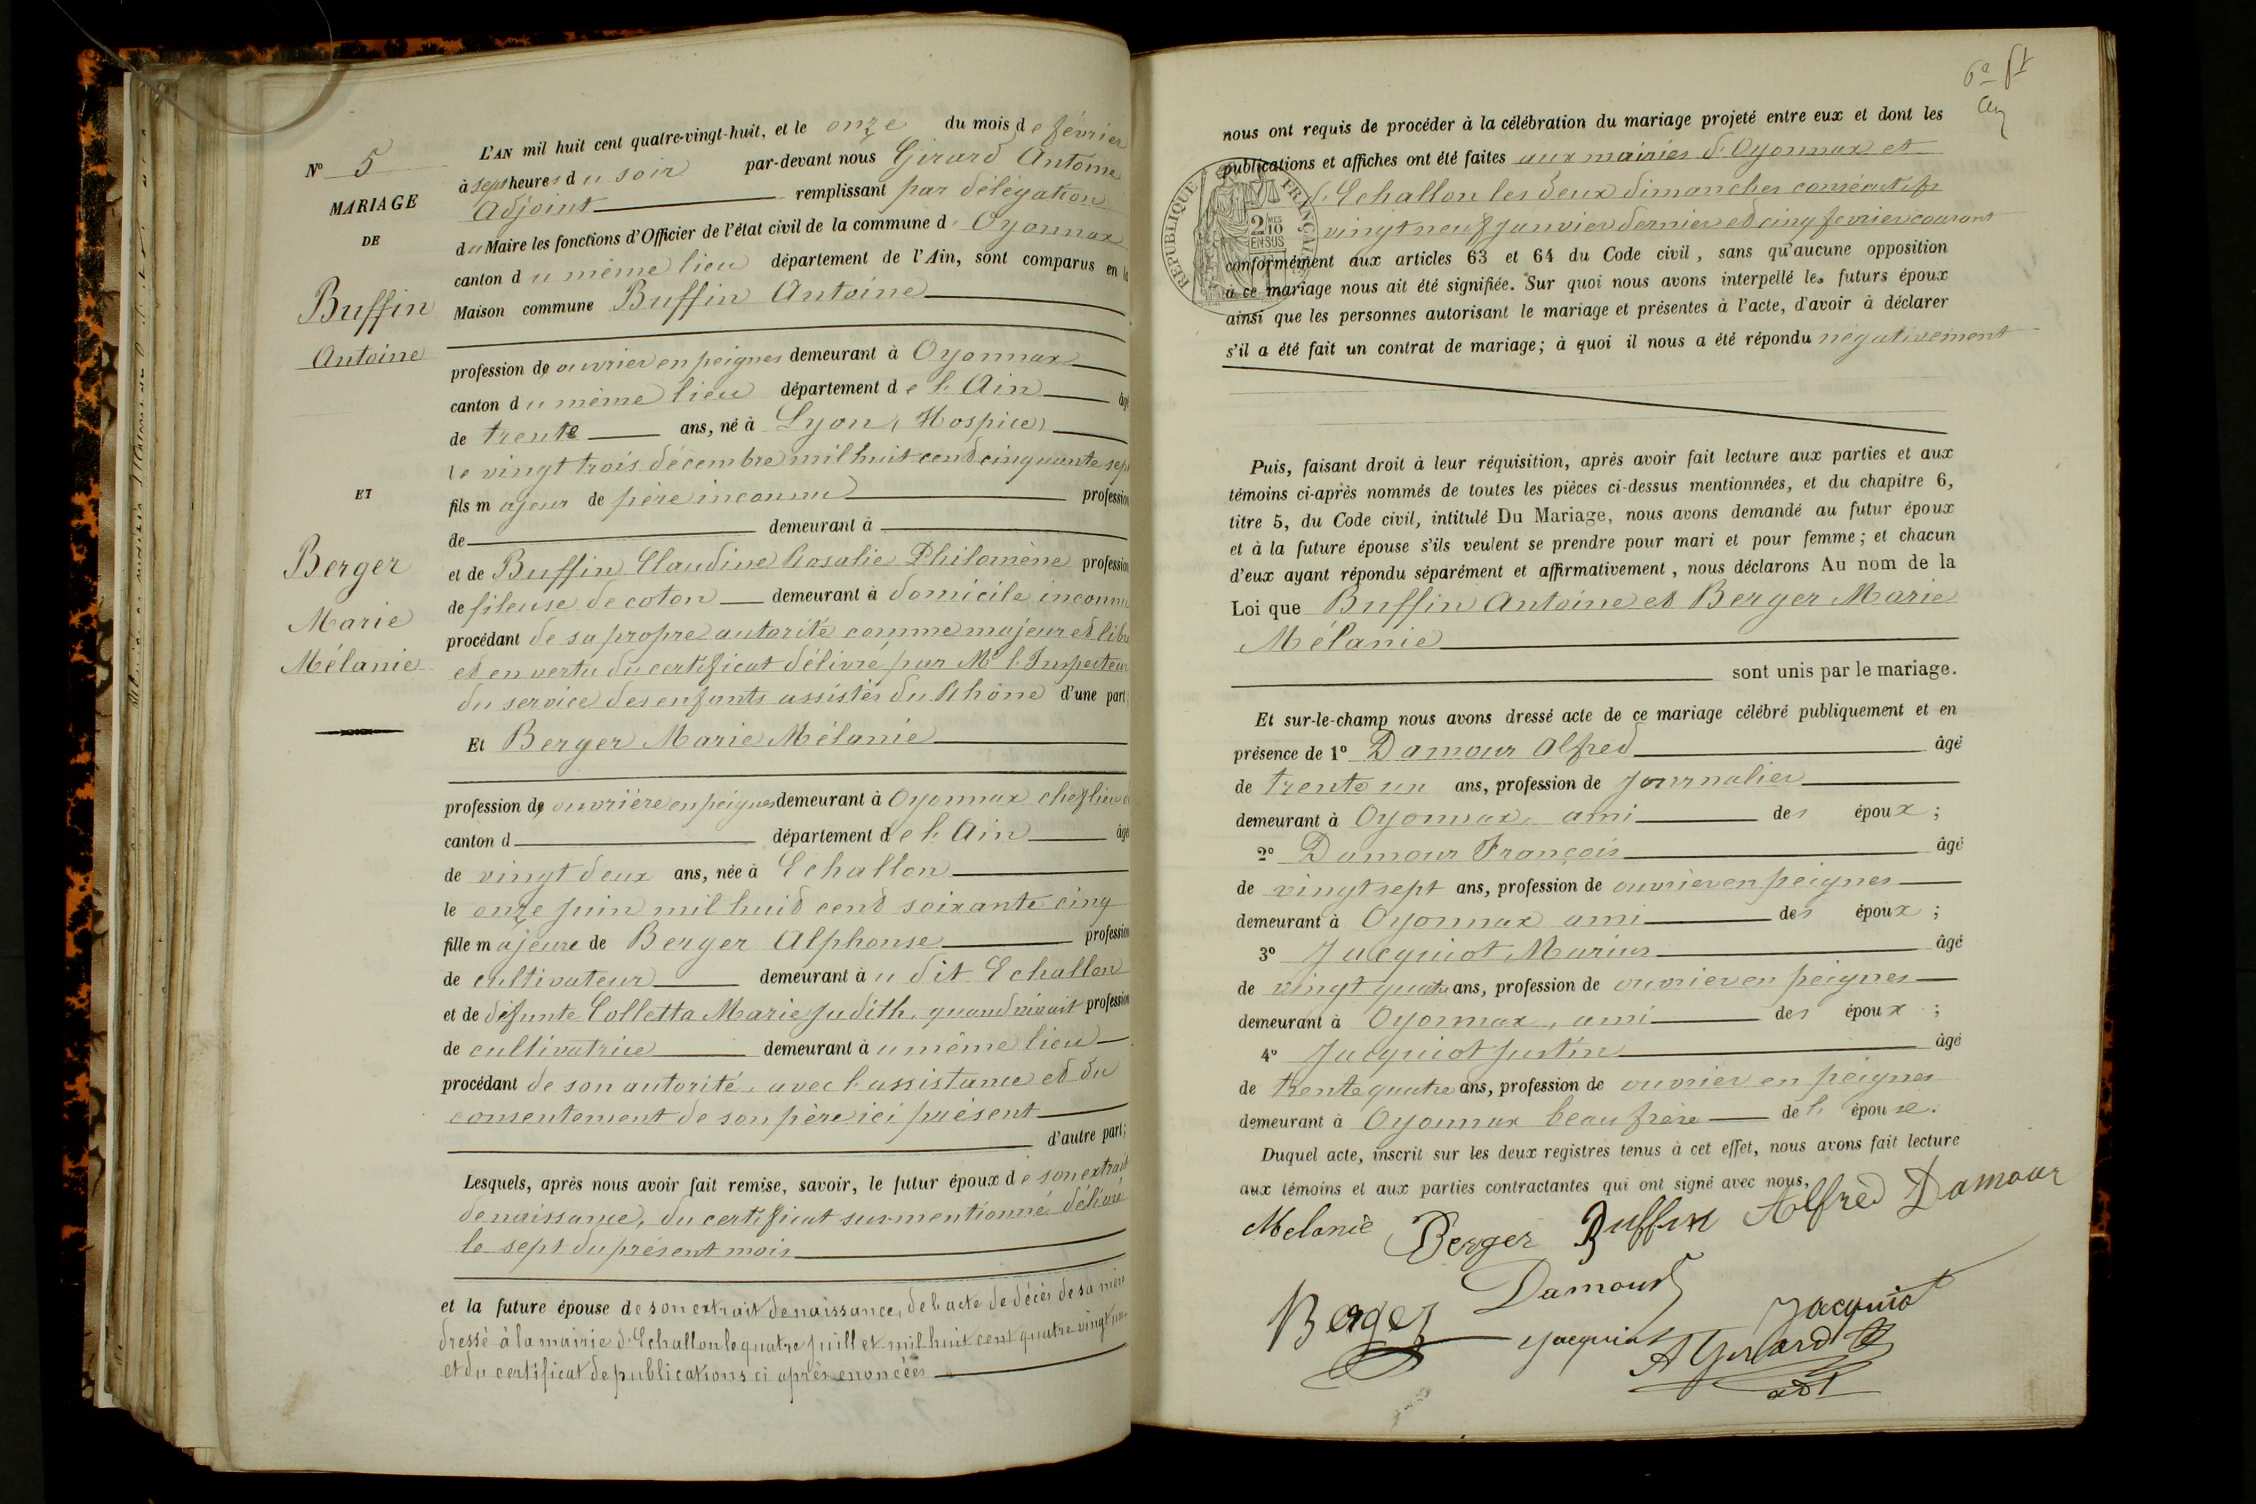 N° 5
MARIAGE
DE
Buffin
Antoine
ET
Berger
Marie
Mélanie
L'AN mil huit cent quatre-vingt-huit, et le onze du mois de février
à sept heures du soir par-devant nous Girard Antoine
Adjoint remplissant par délégation
du Maire les fonctions d'Officier de l'état civil de la commune d' Oyonnax
canton du même lieu département de l'Ain, sont comparus en la
Maison commune Buffin Antoine
profession de ouvrier en peignes demeurant à Oyonnax
canton du même lieu département de l'Ain âgé
de trente ans, né à Lyon (Hospice)
le vingt trois décembre mil huit cent cinquante sept
fils majeur de père inconnu profession
de demeurant à
et de Buffin Claudine Rosalie Philomène profession
de fileuse de coton demeurant à domicile inconnu
procédant de sa propre autorité comme majeur et libre
et en vertu du certificat délivré par Mr l'Inspecteur
du service des enfants assistés du Rhône d'une part;
Et Berger Marie Mélanie
profession de ouvrière en peignes demeurant à Oyonnax chef lieu de
canton d département de l'Ain âgé
de vingt deux ans, née à Echallon
le onze juin mil huit cent soixante cinq
fille majeure de Berger Alphonse profession
de cultivateur demeurant à u dit Echallon
et de défunte Colletta Marie Judith, quand vivait profession
de cultivatrice demeurant à u même lieu
procédant de son autorité, avec l'assistance et du
consentement de son père ici présent
d'autre part;
Lesquels, après nous avoir fait remise, savoir, le futur époux de son extrait
de naissance, du certificat sus-mentionné délivré
le sept du présent mois
et la future épouse de son extrait de naissance, de l'acte de décès de sa mère
dressé à la mairie d'Echallon le quatre juillet mil huit cent quatre vingt
et du certificat de publications ci après enoncées
6e ft
nous ont requis de procéder à la célébration du mariage projeté entre eux et dont les
publications et affiches ont été faites aux mairies d'Oyonnax et
d'Echallon les deux dimanches consécutifs
vingt neuf janvier dernier et cinq fevrier courant
conformément aux articles 63 et 64 du Code civil, sans qu'aucune opposition
à ce mariage nous ait été signifiée. Sur quoi nous avons interpellé les futurs époux
ainsi que les personnes autorisant le mariage et présentes à l'acte, d'avoir à déclarer
s'il a été fait un contrat de mariage; à quoi il nous a été répondu négativement
RÉPUBLIQUE FRANÇAISE
2/10
EN SUS
Puis, faisant droit à leur réquisition, après avoir fait lecture aux parties et aux
témoins ci-après nommés de toutes les pièces ci-dessus mentionnées, et du chapitre 6,
titre 5, du Code civil, intitulé Du Mariage, nous avons demandé au futur époux
et à la future épouse s'ils veulent se prendre pour mari et pour femme; et chacun
d'eux ayant répondu séparément et affirmativement, nous déclarons Au nom de la
Loi que Buffin Antoine et Berger Marie
Mélanie
sont unis par le mariage.
Et sur-le-champ nous avons dressé acte de ce mariage célébré publiquement et en
présence de 1° Damour Alfred âgé
de trente un ans, profession de journalier
demeurant à Oyonnax, ami des époux;
2° Damour François âgé
de vingt sept ans, profession de ouvrier en peignes
demeurant à Oyonnax ami des époux;
3° Jacquiot Marius âgé
de vingt quatre ans, profession de ouvrier en peignes
demeurant à Oyonnax, ami des époux;
4° Jacquiot Justin âgé
de trente quatre ans, profession de ouvrier en peignes
demeurant à Oyonnax beau frère de l' épouse.
Duquel acte, inscrit sur les deux registres tenus à cet effet, nous avons fait lecture
aux témoins et aux parties contractantes qui ont signé avec nous,
Melanie Berger Buffin Alfred Damour
Berger Damour Jacquiot
Jacquiot A Girard
adt